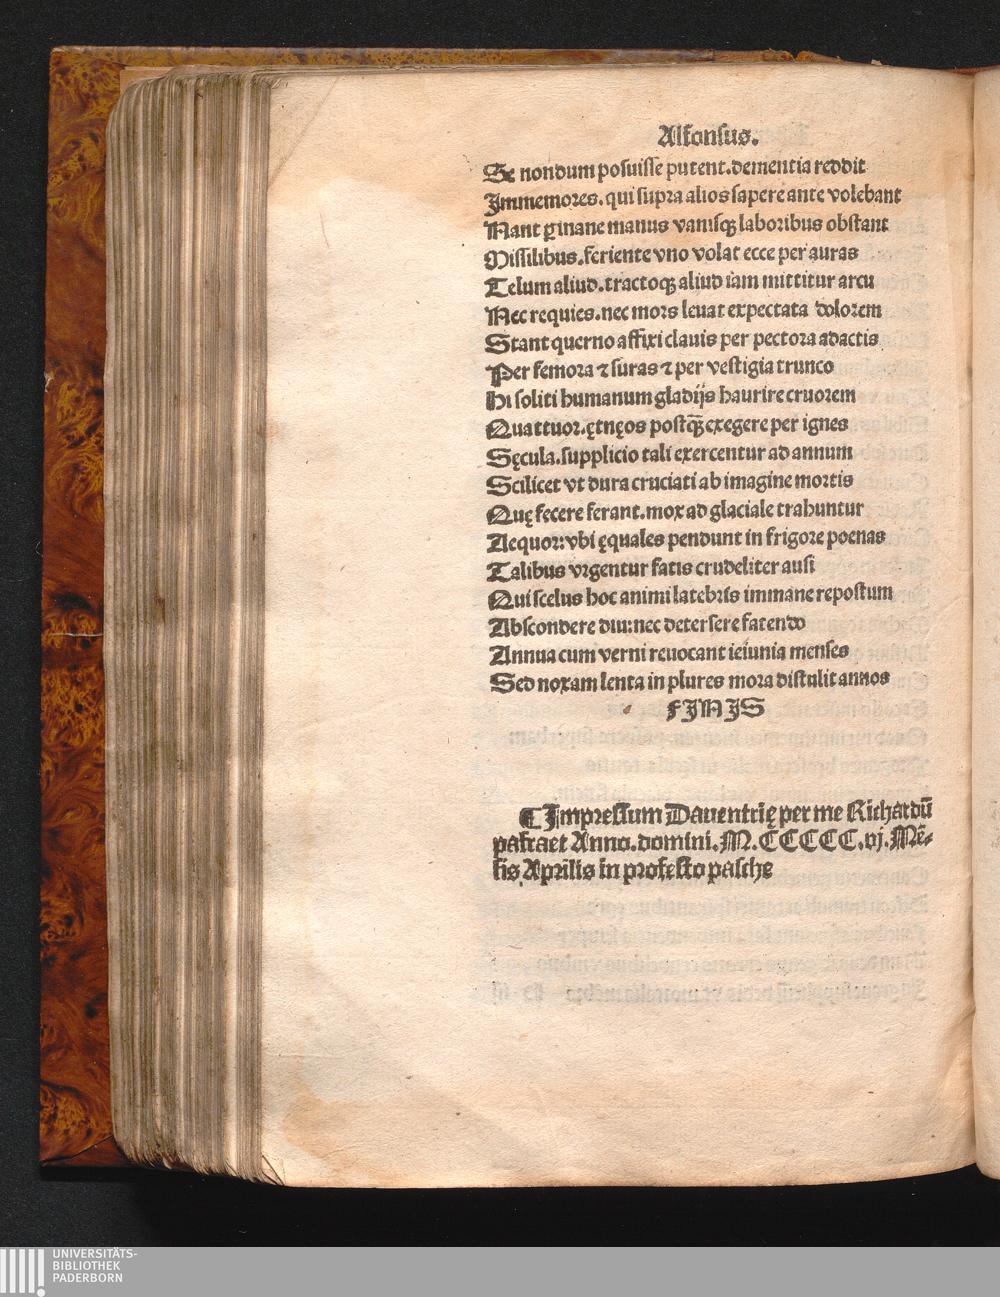 Alfonsus.
Se nondum posuisse putent.dementia reddit
Immemores.qui supra alios sapere ante volebant
Nant ꝑ inane manus vanisqꝫ laboribus obstant
Missilibus.feriente vno volat ecce per auras
Telum aliud.tractoqꝫ aliud iam mittitur arcu
Nec requies.nec mors leuat expectata dolorem
Stant querno affixi clauis per pectora adactis
Per femora ⁊ suras ⁊ per vestigia trunco
Hi soliti humanum gladijs haurire cruorem
Quattuor.ętnęos postqӡ̄ exegere per ignes
Sęcula.supplicio tali exercentur ad annum
Scilicet vt dura cruciati ab imagine mortis
Quę fecere ferant.mox ad glaciale trahuntur
Aequor:vbi ęquales pendunt in frigore poenas
Talibus vrgentur fatis crudeliter ausi
Qui scelus hoc animi latebris immane repostum
Abscondere diu:nec detersere fatendo
Annua cum verni reuocant ieiunia menses
Sed noxam lenta in plures mora distulit annos
FINIS
¶ Impressum Dauentrię per me Richardū
pafraet Anno.domini.M.CCCCC.vj.Mē-
sis Aprilis in profesto pasche
UNIVERSITÄTS-
BIBLIOTHEK
PADERBORN